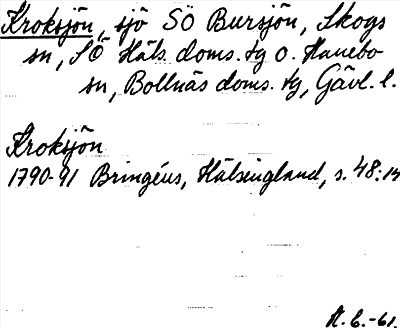 Kroksjön, sjö SÖ Bursjön, Skogs
sn, SÖ Häls. doms. tg o. Hanebo
sn, Bollnäs doms. tg, Gävl. l.
Kroksjön
1790-91 Bringéus, Hälsingland, s. 48:14
-61.